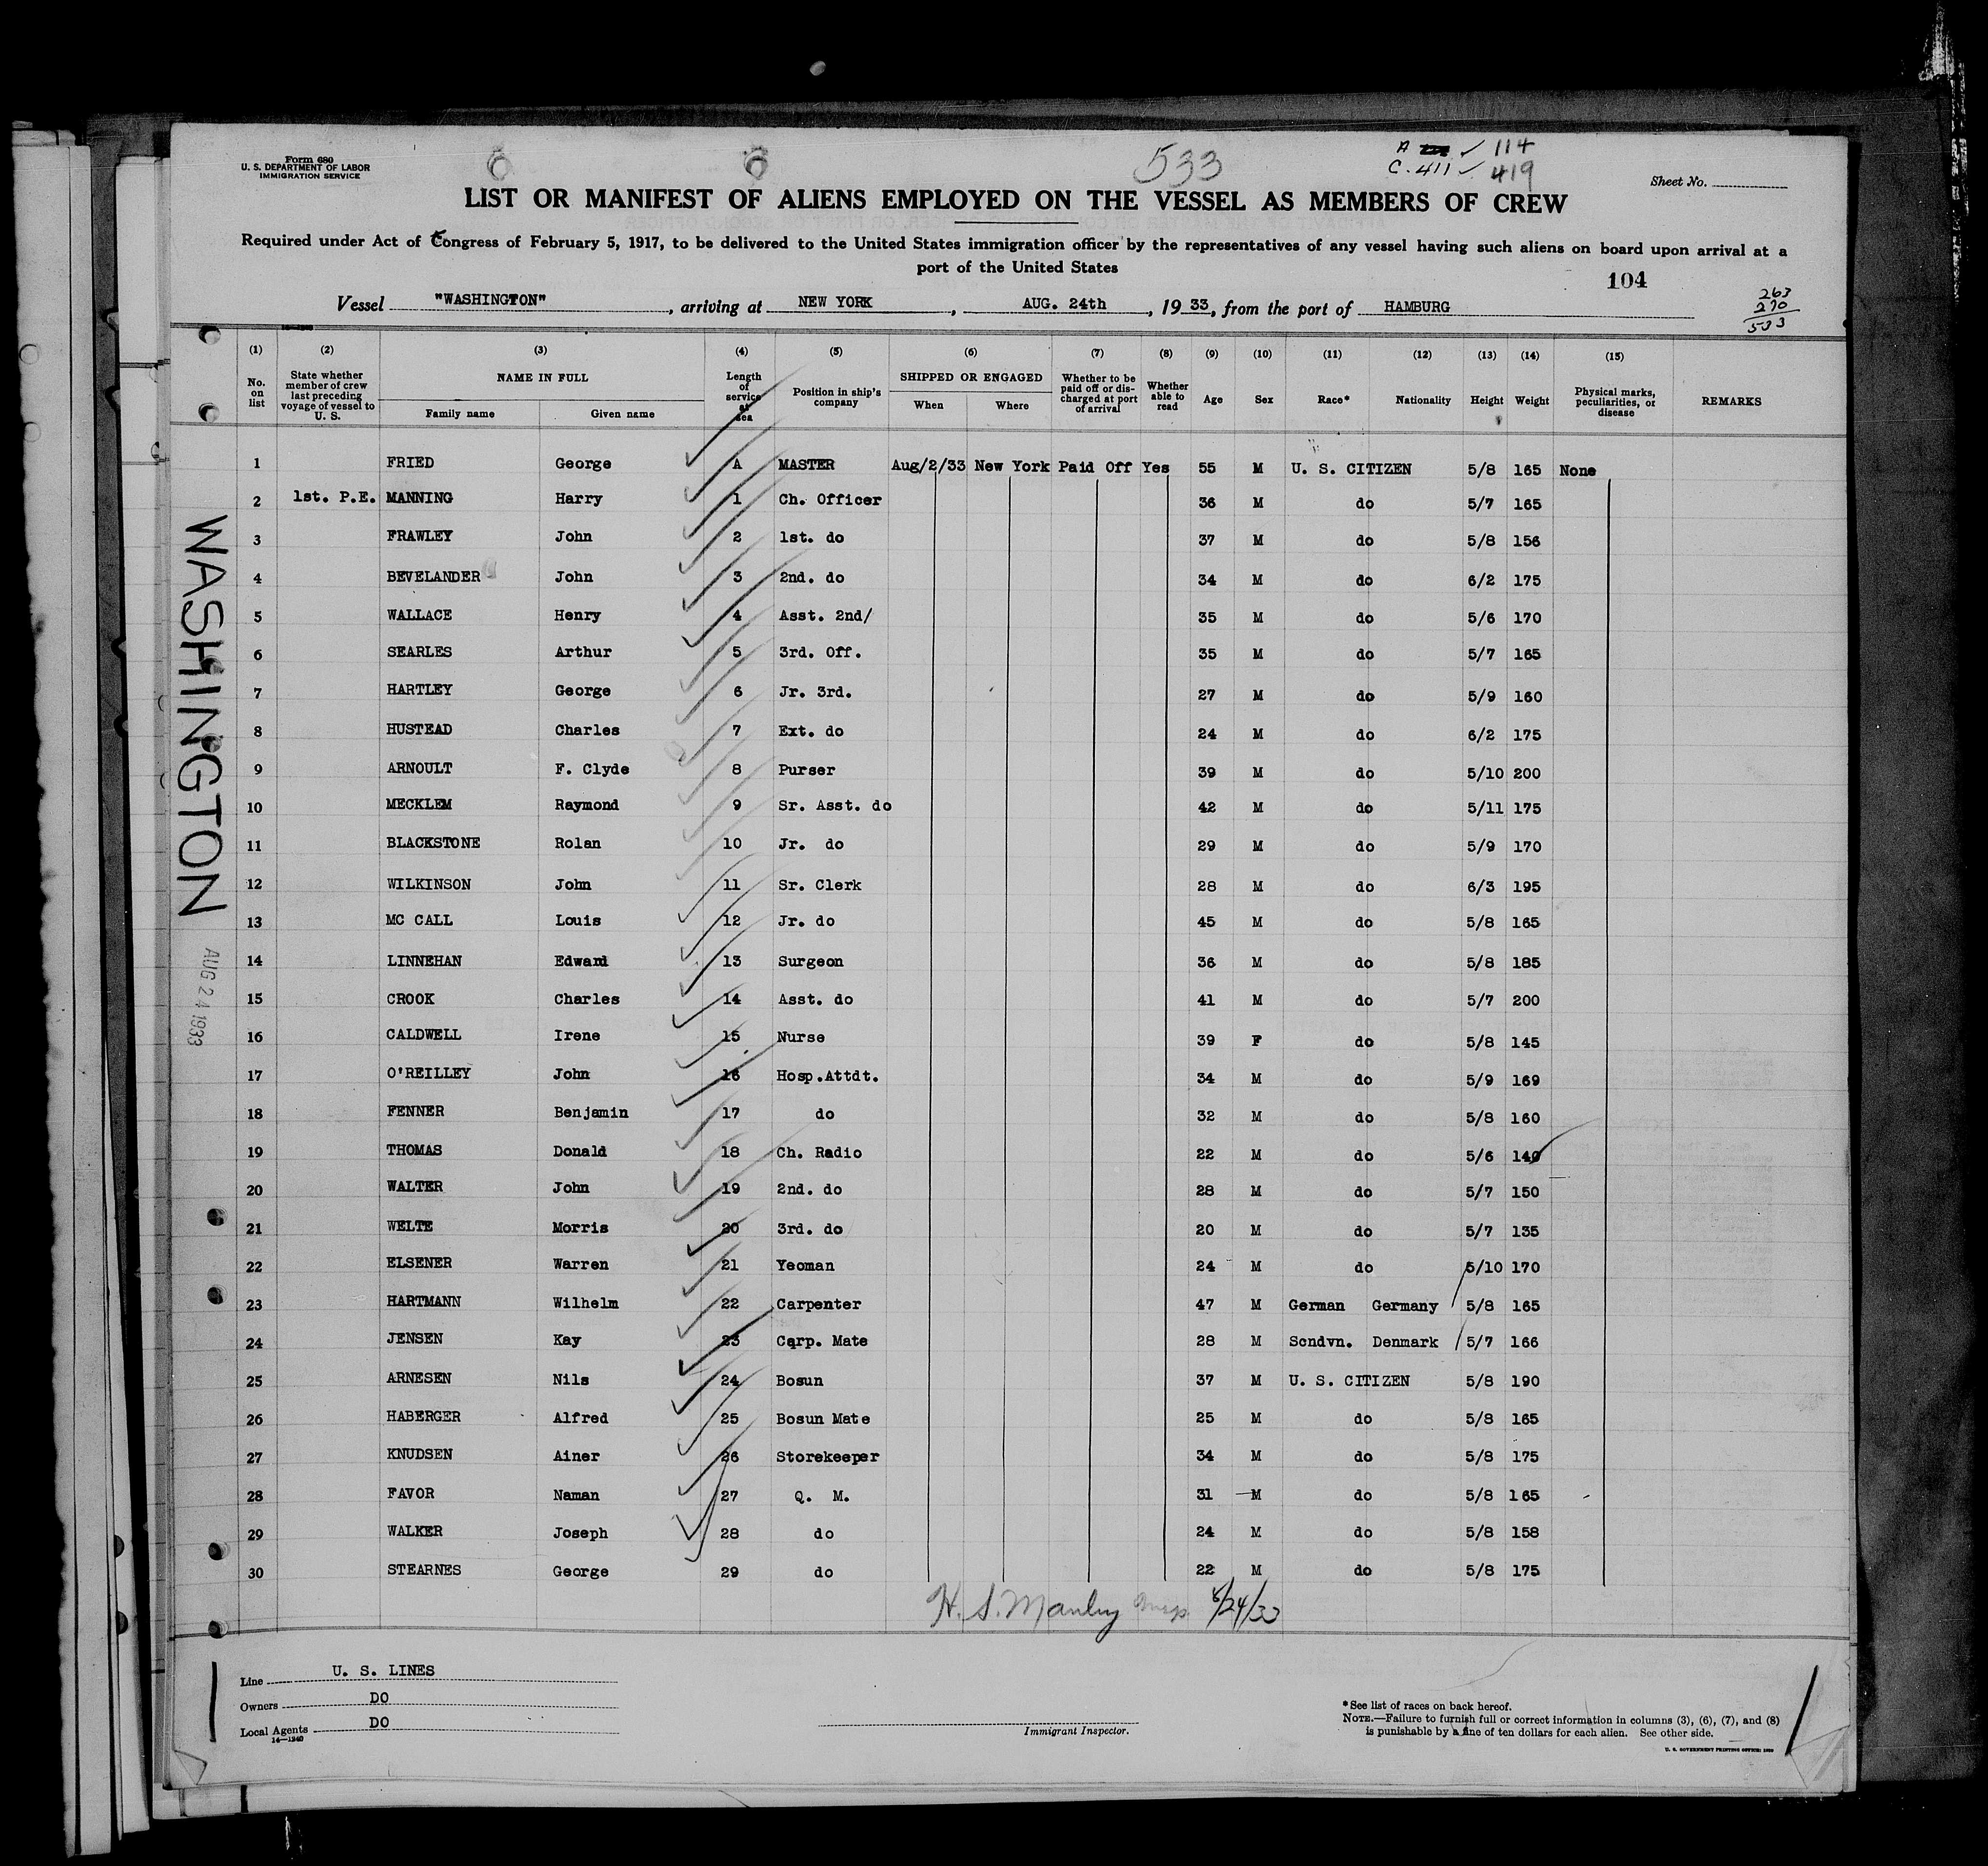 Form 680
U. S. DEPARTMENT OF LABOR
IMMIGRATION SERVICE
533
A ✓ 114
C. 411 ✓ 419
Sheet No.
LIST OR MANIFEST OF ALIENS EMPLOYED ON THE VESSEL AS MEMBERS OF CREW
Required under Act of Congress of February 5, 1917, to be delivered to the United States immigration officer by the representatives of any vessel having such aliens on board upon arrival at a
port of the United States
104
Vessel "WASHINGTON", arriving at NEW YORK, AUG. 24th, 1933, from the port of HAMBURG
263
270
533
(1) (2) (3) (4) (5) (6) (7) (8) (9) (10) (11) (12) (13) (14) (15)
No. on list
State whether member of crew last preceding voyage of vessel to U. S.
NAME IN FULL
Family name Given name
Length of service at sea
Position in ship's company
SHIPPED OR ENGAGED
When Where
Whether to be paid off or discharged at port of arrival
Whether able to read
Age Sex Race* Nationality Height Weight
Physical marks, peculiarities, or disease
REMARKS
1 FRIED George A MASTER Aug/2/33 New York Paid Off Yes 55 M U. S. CITIZEN 5/8 165 None
2 1st. P.E. MANNING Harry 1 Ch. Officer 36 M do 5/7 165
3 FRAWLEY John 2 1st. do 37 M do 5/8 156
4 BEVELANDER John 3 2nd. do 34 M do 6/2 175
5 WALLACE Henry 4 Asst. 2nd/ 35 M do 5/6 170
6 SEARLES Arthur 5 3rd. Off. 35 M do 5/7 165
7 HARTLEY George 6 Jr. 3rd. 27 M do 5/9 160
8 HUSTEAD Charles 7 Ext. do 24 M do 6/2 175
9 ARNOULT F. Clyde 8 Purser 39 M do 5/10 200
10 MECKLEM Raymond 9 Sr. Asst. do 42 M do 5/11 175
11 BLACKSTONE Rolan 10 Jr. do 29 M do 5/9 170
12 WILKINSON John 11 Sr. Clerk 28 M do 6/3 195
13 MC CALL Louis 12 Jr. do 45 M do 5/8 165
14 LINNEHAN Edward 13 Surgeon 36 M do 5/8 185
15 CROOK Charles 14 Asst. do 41 M do 5/7 200
16 CALDWELL Irene 15 Nurse 39 F do 5/8 145
17 O'REILLEY John 16 Hosp.Attdt. 34 M do 5/9 169
18 FENNER Benjamin 17 do 32 M do 5/8 160
19 THOMAS Donald 18 Ch. Radio 22 M do 5/6 140
20 WALTER John 19 2nd. do 28 M do 5/7 150
21 WELTE Morris 20 3rd. do 20 M do 5/7 135
22 ELSENER Warren 21 Yeoman 24 M do 5/10 170
23 HARTMANN Wilhelm 22 Carpenter 47 M German Germany 5/8 165
24 JENSEN Kay 23 Carp. Mate 28 M Scndvn. Denmark 5/7 166
25 ARNESEN Nils 24 Bosun 37 M U. S. CITIZEN 5/8 190
26 HABERGER Alfred 25 Bosun Mate 25 M do 5/8 165
27 KNUDSEN Ainer 26 Storekeeper 34 M do 5/8 175
28 FAVOR Naman 27 Q. M. 31 M do 5/8 165
29 WALKER Joseph 28 do 24 M do 5/8 158
30 STEARNES George 29 do 22 M do 5/8 175
WASHINGTON
AUG 24 1933
H. S. Manley Insp. 8/24/33
Line U. S. LINES
Owners DO
Local Agents DO
14—1240
Immigrant Inspector.
*See list of races on back hereof.
NOTE.—Failure to furnish full or correct information in columns (3), (6), (7), and (8)
is punishable by a fine of ten dollars for each alien. See other side.
U. S. GOVERNMENT PRINTING OFFICE: